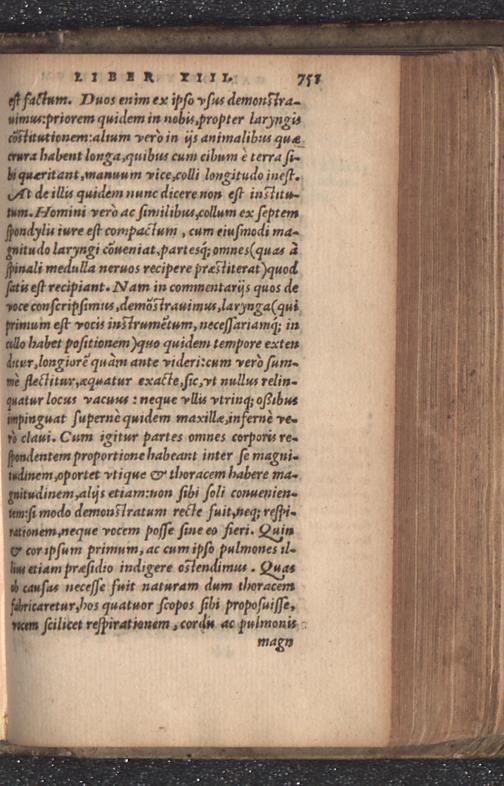 LIBER XIII. 751
est factum. Duos enim ex ipso vsus demonstra-
uimus: priorem quidem in nobis, propter laryngis
cōstitutionem: alium verò in ijs animalibus quæ
crura habent longa, quibus cum cibum è terra si-
bi quæritant, manuum vice, colli longitudo inest.
At de illis quidem nunc dicere non est institu-
tum. Homini verò ac similibus, collum ex septem
spondylis iure est compactum, cum eiusmodi ma-
gnitudo laryngi cōueniat, partesq; omnes (quas à
spinali medulla neruos recipere præstiterat) quod
satis est recipiant. Nam in commentarijs quos de
voce conscripsimus, demōstrauimus, larynga (qui
primum est vocis instrumētum, necessariamq; in
collo habet positionem) quo quidem tempore exten
ditur, longiorē quàm ante videri: cum verò sum-
mè flectitur, æquatur exacte, sic, vt nullus relin-
quatur locus vacuus: neque vllis vtrinq; ossibus
impinguat supernè quidem maxillæ, infernè ve-
rò claui. Cum igitur partes omnes corporis re-
spondentem proportione habeant inter se magni-
tudinem, oportet vtique & thoracem habere ma-
gnitudinem, alijs etiam: non sibi soli conuenien-
tem: si modo demonstratum recte fuit, neq; respi-
rationem, neque vocem posse sine eo fieri. Quin
& cor ipsum primum, ac cum ipso pulmones il-
lius etiam præsidio indigere ostendimus. Quas
ob causas necesse fuit naturam dum thoracem
fabricaretur, hos quatuor scopos sibi proposuisse,
vocem scilicet respirationem, cordis ac pulmonis
magn